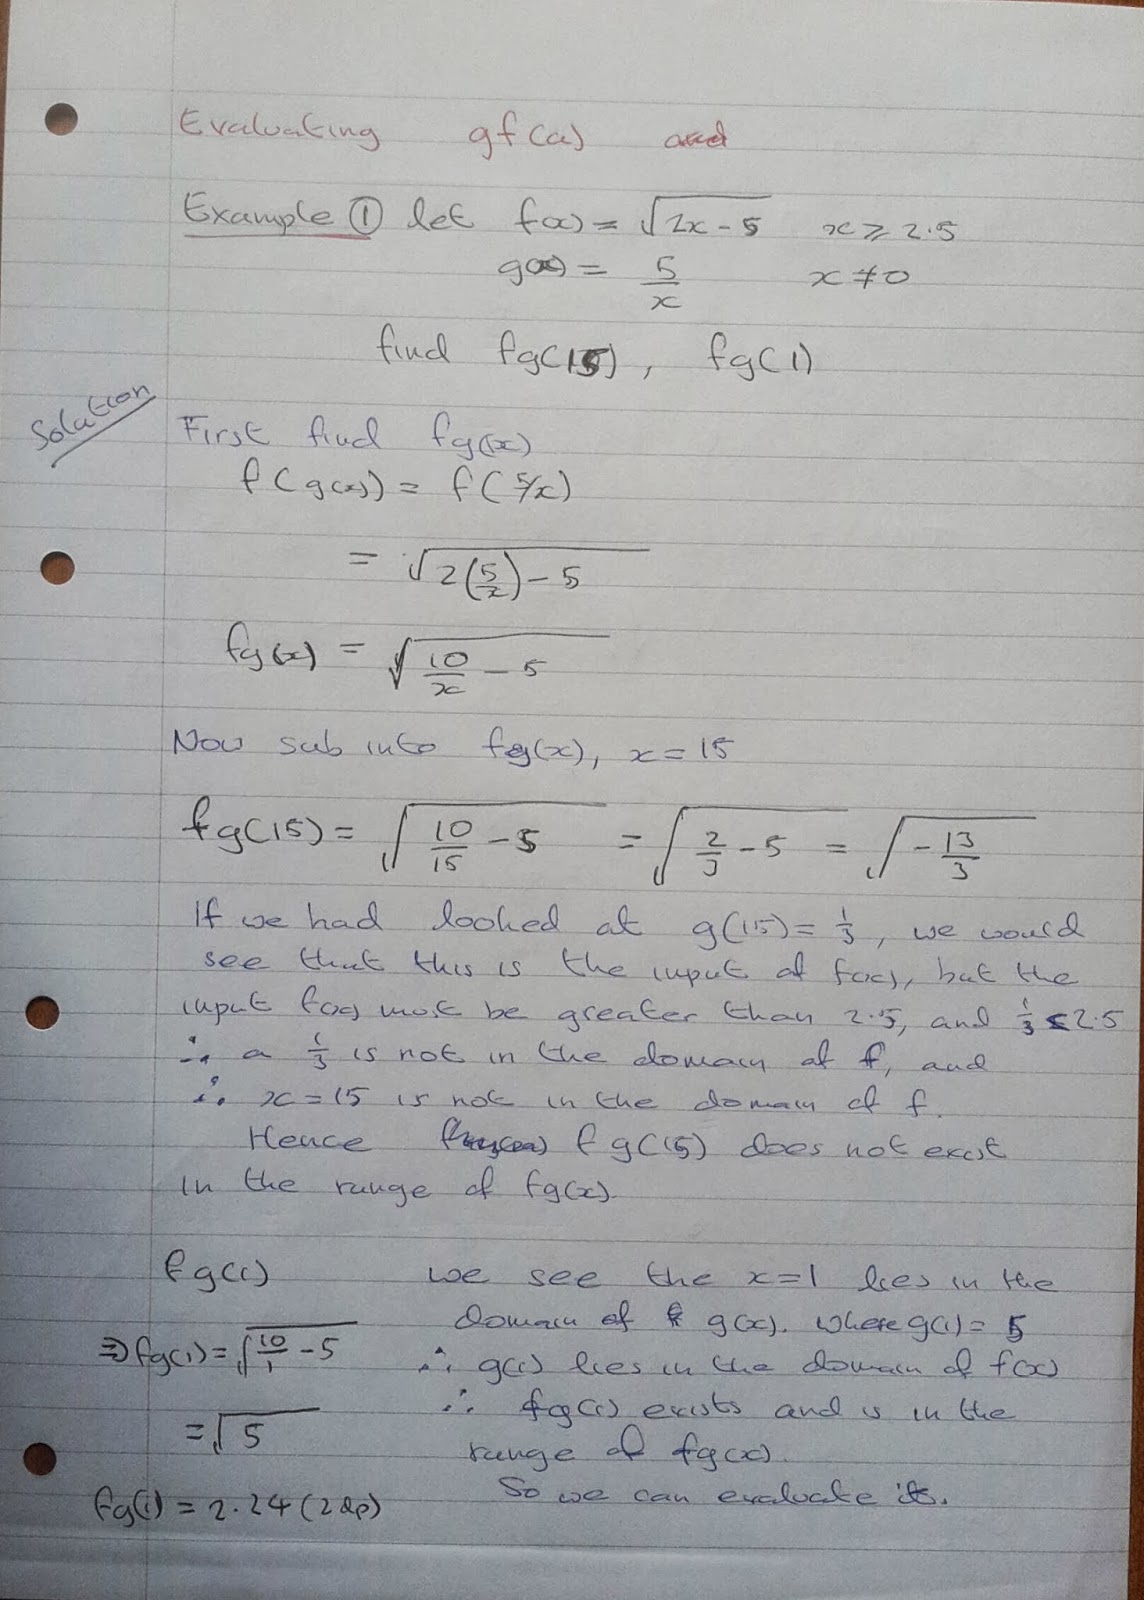 Evaluating gf(a) and
Example ① let f(x) = √(2x - 5) x ≥ 2.5
g(x) = 5/x x ≠ 0
find fg(15), fg(1)
Solution
First find fg(x)
f(g(x)) = f(5/x)
= √(2(5/x) - 5)
fg(x) = √(10/x - 5)
Now sub into fg(x), x = 15
fg(15) = √(10/15 - 5) = √(2/3 - 5) = √(-13/3)
If we had looked at g(15) = 1/3, we would
see that this is the input of f(x), but the
input f(x) must be greater than 2.5, and 1/3 < 2.5
∴ a 1/3 is not in the domain of f, and
∴ x = 15 is not in the domain of f.
Hence fg(15) does not exist
in the range of fg(x).
fg(1)
⇒ fg(1) = √(10/1 - 5)
= √5
fg(1) = 2.24 (2dp)
we see the x=1 lies in the
domain of g(x). where g(1) = 5
∴ g(1) lies in the domain of f(x)
∴ fg(1) exists and is in the
range of fg(x).
So we can evaluate it.